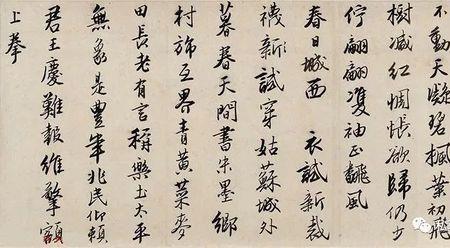 不動天凝碧楓葉初飛
樹減紅惆悵欲歸仍少
佇翩翩雙袖正飜風
春日城西 衣試新裁
襪新試穿姑蘇城外
暮春天間書朱墨鄉
村飾互界青黃菜麥
田長老有言稱樂土太平
無象是豐年兆民仰賴
君王慶難報維擎額
上拳